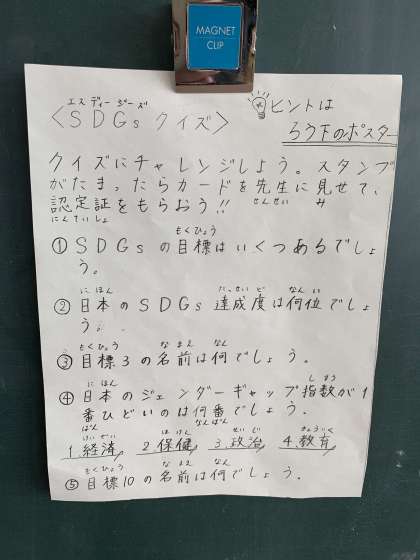 MAGNET
CLIP
エスディージーズ
〈SDGs クイズ〉
ヒントは
ろう下のポスター
クイズにチャレンジしよう。スタンプ
がたまったらカードを先生に見せて、
せんせい み
認定証をもらおう!!
にんていしょ
もくひょう
①SDGsの目標はいくつあるでしょ
う。
にほん たっせいど なんい
②日本のSDGs達成度は何位でしょ
う。
もくひょう なまえ なん
③目標3の名前は何でしょう。
にほん しすう
④日本のジェンダーギャップ指数が1
番ひどいのは何番でしょう.
ばん なんばん
けいざい ほけん せいじ きょういく
1.経済 2.保健 3.政治 4.教育
もくひょう なまえ なん
⑤目標10の名前は何でしょう.